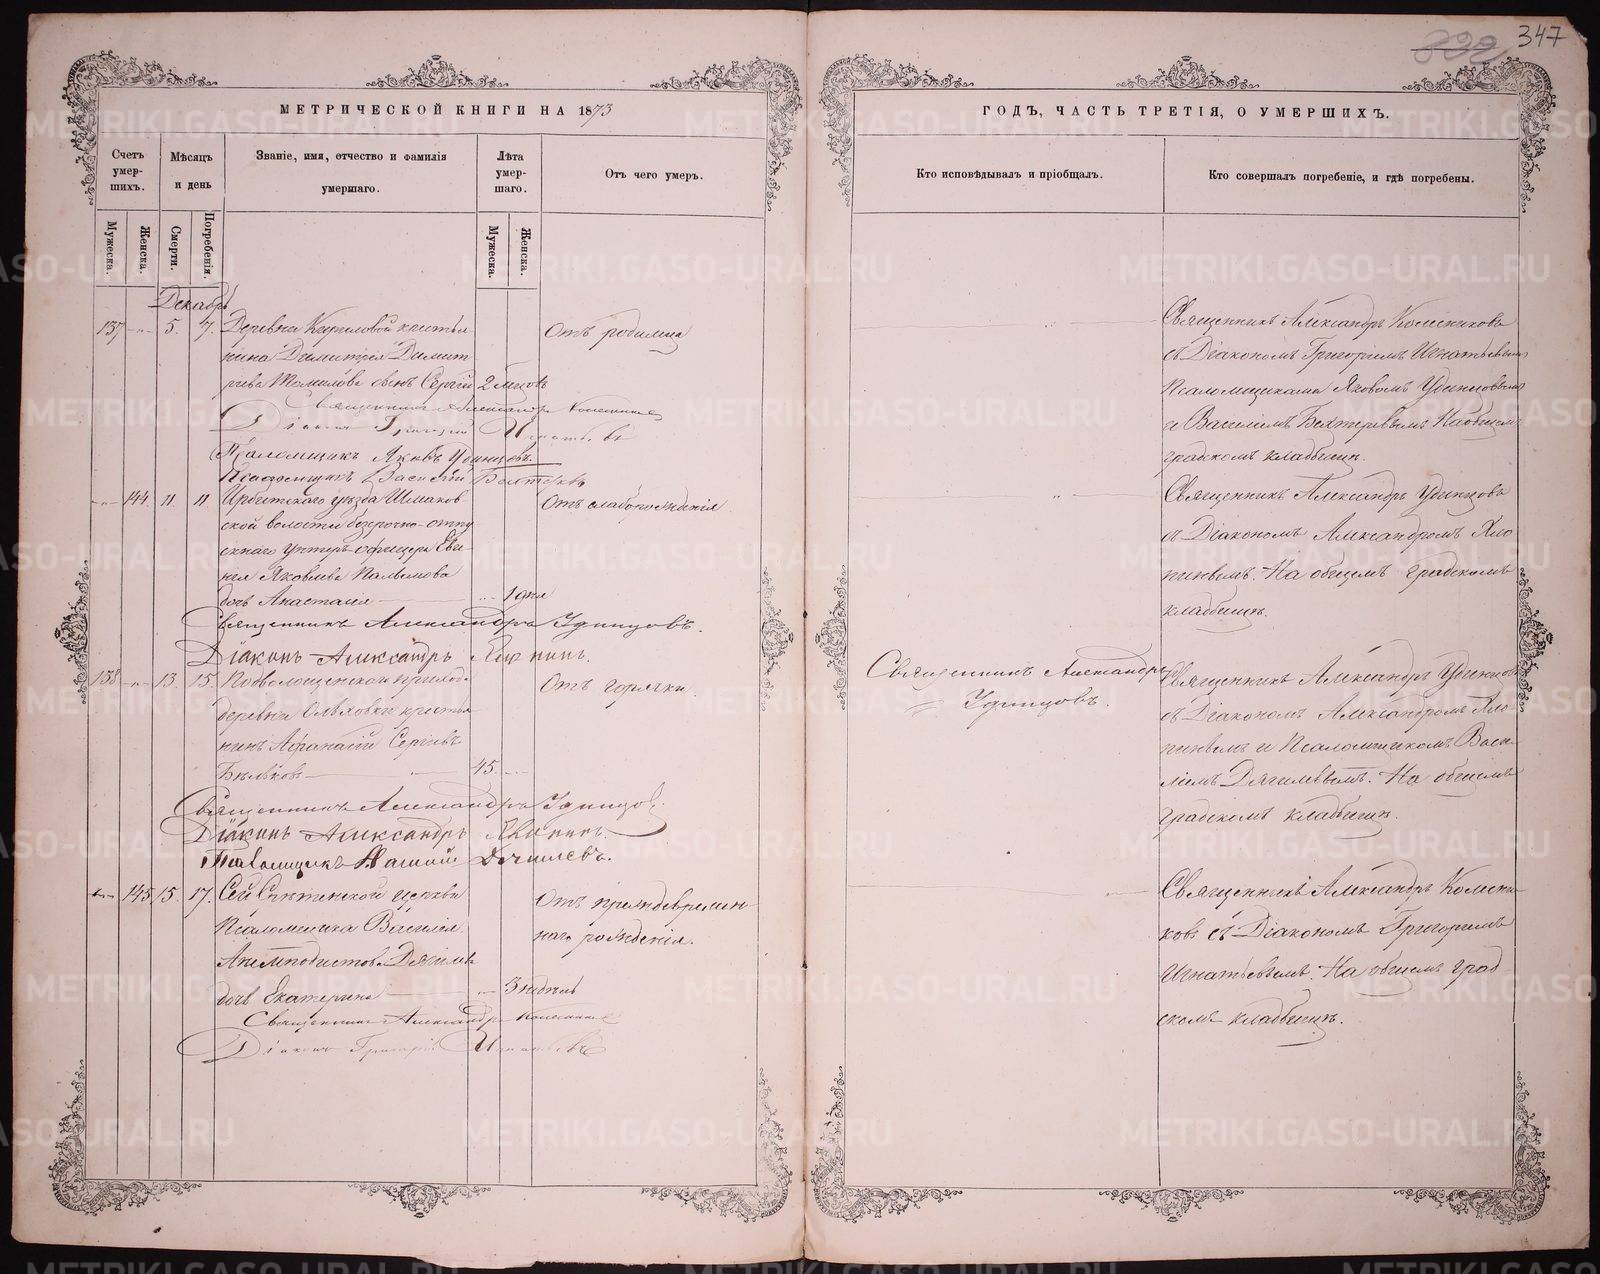 347
МЕТРИЧЕСКОЙ КНИГИ НА 1873
ГОДЪ, ЧАСТЬ ТРЕТІЯ, О УМЕРШИХЪ.
Счетъ умер-шихъ.
Мѣсяцъ и день
Званіе, имя, отчество и фамилія умершаго.
Лѣта умер-шаго.
Отъ чего умеръ.
Кто исповѣдывалъ и пріобщалъ.
Кто совершалъ погребеніе, и гдѣ погребены.
Мужеска.
Женска.
Смерти.
Погребенія.
Мужеска.
Женска.
Декабрь
137 5. 7. Деревни Кириловой крестья-
нина Димитрія Димит-
ріева сынъ Сергій 2
Отъ родимца
Священникъ Александръ Колесниковъ
Діаконъ Григорій Игнатьевъ
Псаломщикъ Яковъ Удинцовъ.
Псаломщикъ Василій
Священникъ Александръ Колесниковъ
съ Діакономъ Григоріемъ Игнатьевымъ
Псаломщиками Яковомъ Удинцовымъ
и Василіемъ Бехтеревымъ На общемъ
градскомъ кладбищѣ.
144 11. 11. Ирбитскаго уѣзда Шмаков
ской волости безсрочно-отпу
скнаго унтеръ-офицера Евге-
нія Яковлева
дочь Анастасія 1 дня
Отъ слаборожденія
Священникъ Александръ Удинцовъ.
Діаконъ Александръ
Священникъ Александръ Удинцовъ
съ Діакономъ Александромъ Хло
пинымъ. На общемъ градскомъ
кладбищѣ.
138 13. 15. Подволошинской приход.
деревни крестья
нинъ Афанасій Сергіевъ
Бѣльковъ 45.
Отъ горячки.
Священникъ Александръ Удинцовъ.
Діаконъ Александръ
Священникъ Александръ
Удинцовъ.
Священникъ Александръ Удинцовъ
съ Діакономъ Александромъ Хло-
пинымъ и Псаломщикомъ Васи-
ліемъ Дягилевымъ. На общемъ
градскомъ кладбищѣ.
145 15. 17. Сей Срѣтенской церкви
Псаломщика Василія
Анемподистова Дягилева
дочь Екатерина 3 недѣль
Отъ преждевремен-
наго рожденія.
Священникъ Александръ Колесниковъ
Діаконъ Григорій Игнатьевъ
Священникъ Александръ Колесни-
ковъ съ Діакономъ Григоріемъ
Игнатьевымъ. На общемъ град-
скомъ кладбищѣ.
METRIKI.GASO-URAL.RU